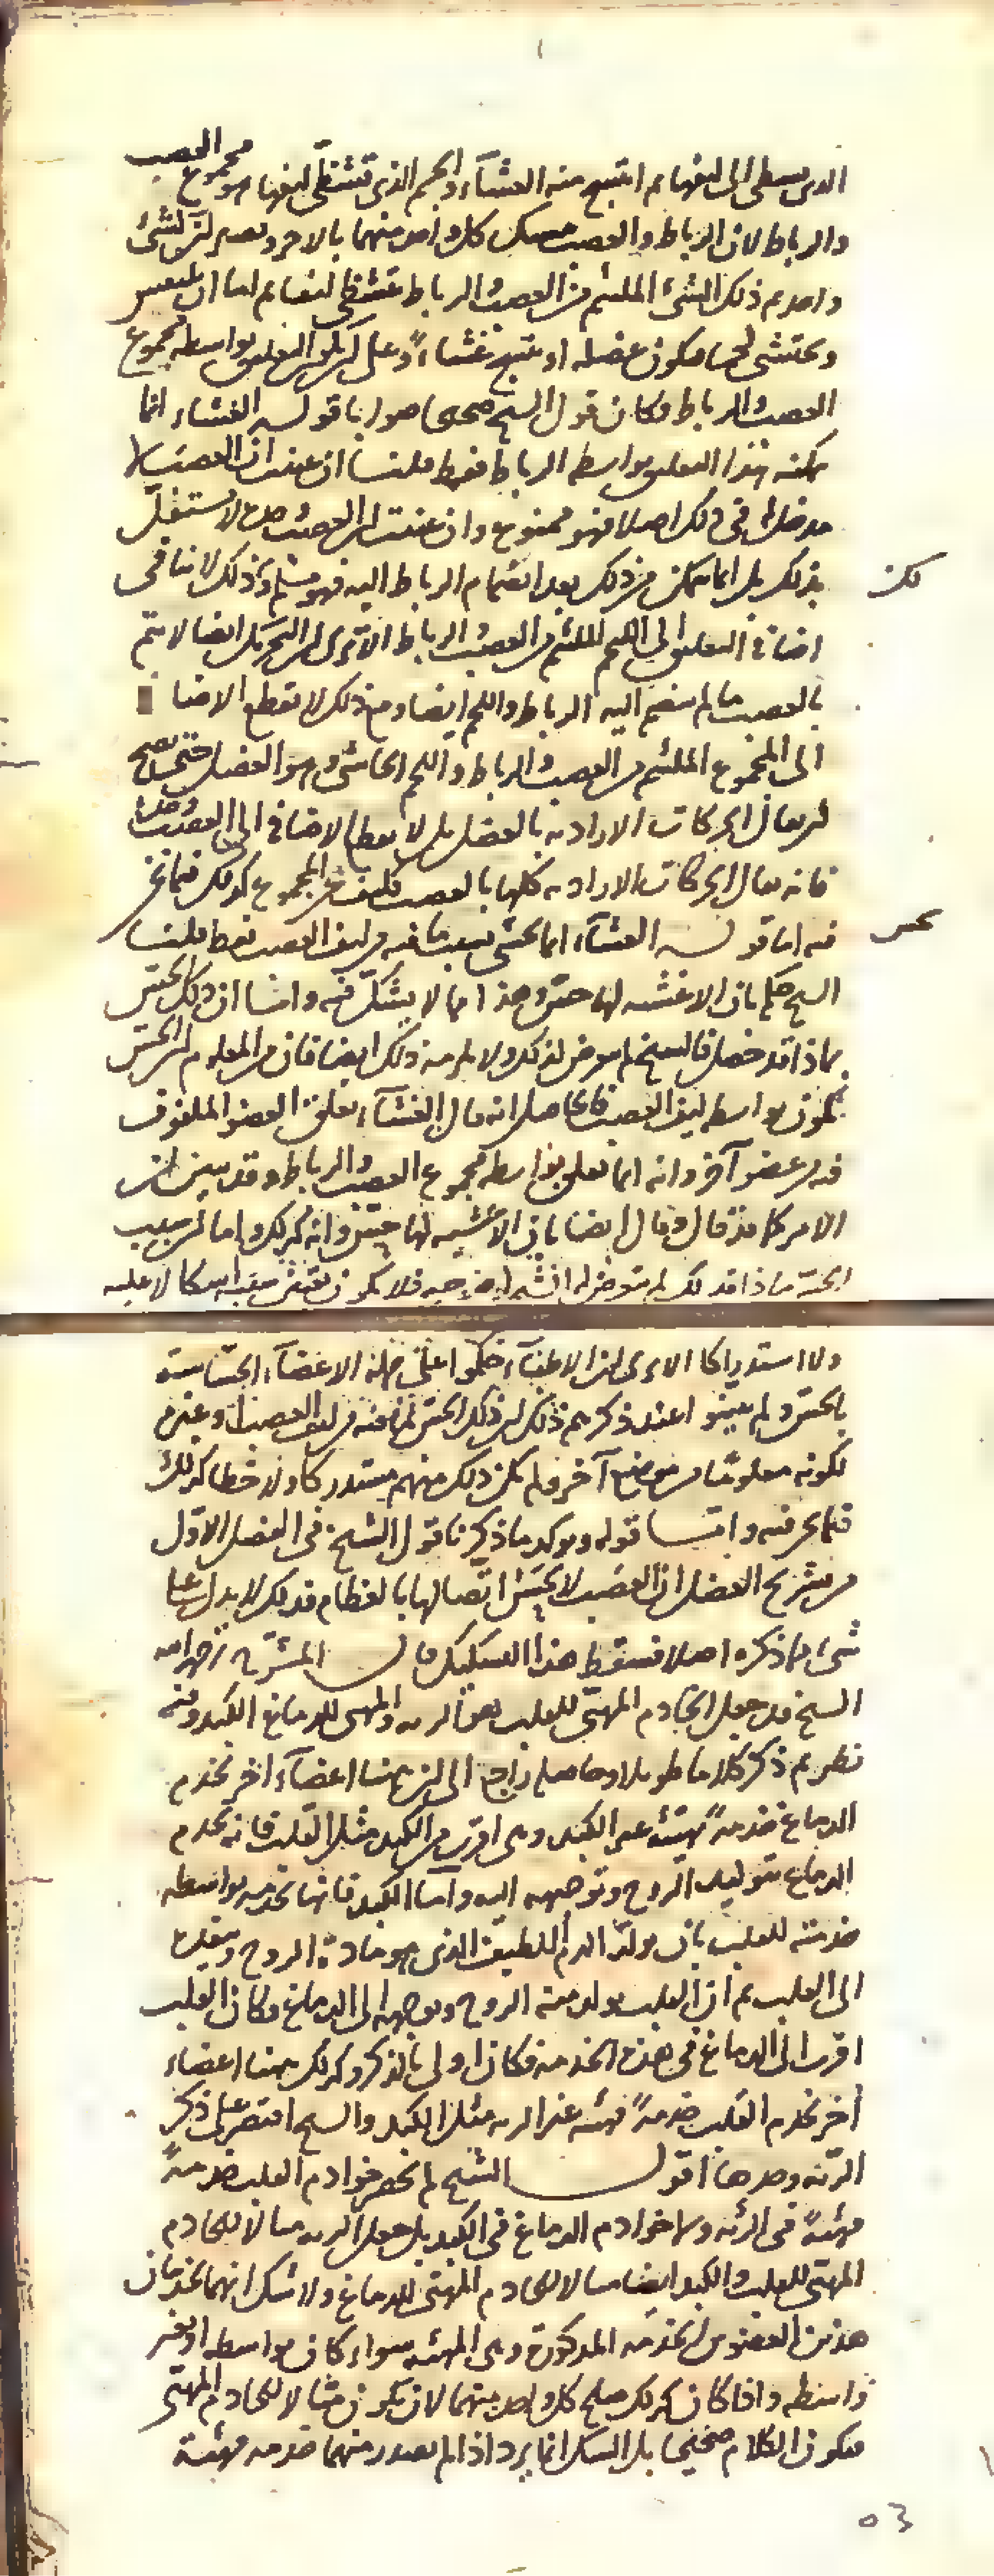 الذى يتشظى الى ليفها ثم انتسج منه الغشاء والجسم الذى تتشظى ليفها هو مجموع العصب
والرباط لان الرباط والعصب يمسك كل واحد منهما بالاخر ويصير كشئ
واحد ثم ذلك الشئ الملتئم من العصب والرباط يتشظى ليفا ثم اما ان
ويحتشى لحما فيكون عضله او ينتسج غشاء وعلى كل يكون التعلق بواسطه مجموع
العصب والرباط فكان قول الشيخ صحيحا صوابا قوله الغشاء انما
يمكنه هذا التعلق بواسطه الرباط فقط قلنا ان عنيت ان العصب لا
مدخل له فى ذلك اصلا فهو ممنوع وان عنيت ان العصب وحده لا يستقل
بذلك بل انما يتمكن من ذلك بعد انضمام الرباط اليه فهو مسلم وذلك لا ينافى لكن
اضافة التعلق الى الجسم الملتئم من العصب والرباط الا ترى ان التحريك ايضا لا يتم
بالعصب ما لم ينضم اليه الرباط واللحم ايضا ومع ذلك لا تقطع الاضا
الى المجموع الملتئم من العصب والرباط واللحم الحاشى وهو العضل حتى يصح
ان يقال الحركات الاراديه بالعضل بل لا يقطع الاضافة الى العصب وحده
فانه يقال الحركات الاراديه كلها بالعصب المجموع كذلك فيما نحن
فيه اما قوله الغشاء انما يحس بسبب ما فيه من ليف العصب فقط قلنا
الشيخ حكم بان الاغشيه لها حس وهذا مما لا يشك فيه واما ان ذلك الحس
بماذا قد حصل فالشيخ لم يتعرض لذلك ولا يلزمه ذلك ايضا فان من المعلوم ان الحس
يكون بواسطه ليف العصب فالحاصل انه قال الغشاء يعلق العضو الملفوف
فيه من عضو آخر وانه انما يعلق بواسطه مجموع العصب والرباط وقد تبين ان
الامر كما قد قال وقال ايضا بان الاغشيه لها حس وانه كذلك واما ان سبب
الحس ماذا فذلك لم يتعرض له الشيخ فلا يكون اشكالا عليه
ولا استدراكا الا ترى ان الاطباء حكموا على جملة الاعضاء الحساسة
بالحس ولم يبينوا عند ذكرهم ذلك ان ذلك الحس لما فيه من ليف العصب او غيره
لكونه معلوما من موضع آخر ولم يكن ذلك منهم مستدركا ولا خطا كذلك
فيما نحن فيه واما قوله ويؤكد ما ذكرنا قول الشيخ فى الفصل الاول
من تشريح العضل ان العصب لا يحسن اتصالها بالعظام فذلك لا يدل على
شئ مما ذكره اصلا فسقط هذا التشكيك قال المسيحى رحمه الله
الشيخ قد جعل الخادم المهيئ للقلب هو الريه والمهيئ للدماغ الكبد وفيه
نظر ثم ذكر كلاما طويلا وحاصله راجع الى ان ههنا اعضاء اخر تخدم
الدماغ خدمة مهيئه غير الكبد وهى اقرب من الكبد مثل القلب فانه يخدم
الدماغ بتوليد الروح وتوجيهه اليه واما الكبد فانها تخدمه بواسطه
خدمته للقلب بان يولد الدم اللطيف الذى هو مادة الروح وينفذه
الى القلب ثم ان القلب يولد منه الروح ويوجهه الى الدماغ فكان القلب
اقرب الى الدماغ فى هذه الخدمه فكان اولى بالذكر وكذلك ههنا اعضاء
أخر تخدم القلب خدمة مهيئه غير الريه مثل الكبد والشيخ اقتصر على ذكر
الرئه وحدها اقول الشيخ لم يحصر خوادم القلب خدمة
مهيئة فى الرئه ولا خوادم الدماغ فى الكبد بل جعل الريه مثالا للخادم
المهيئ للقلب والكبد ايضا مثالا للخادم المهيئ للدماغ ولا شك انهما يخدمان
هذين العضوين الخدمه المذكورة وهى المهيئه سواء كان بواسطه او بغير
واسطه واذا كان كذلك صلح كل واحد منهما لان يكون مثالا للخادم المهيئ
فيكون الكلام صحيحا بل الشك انما يرد اذا لم يصدر منهما خدمه مهيئة